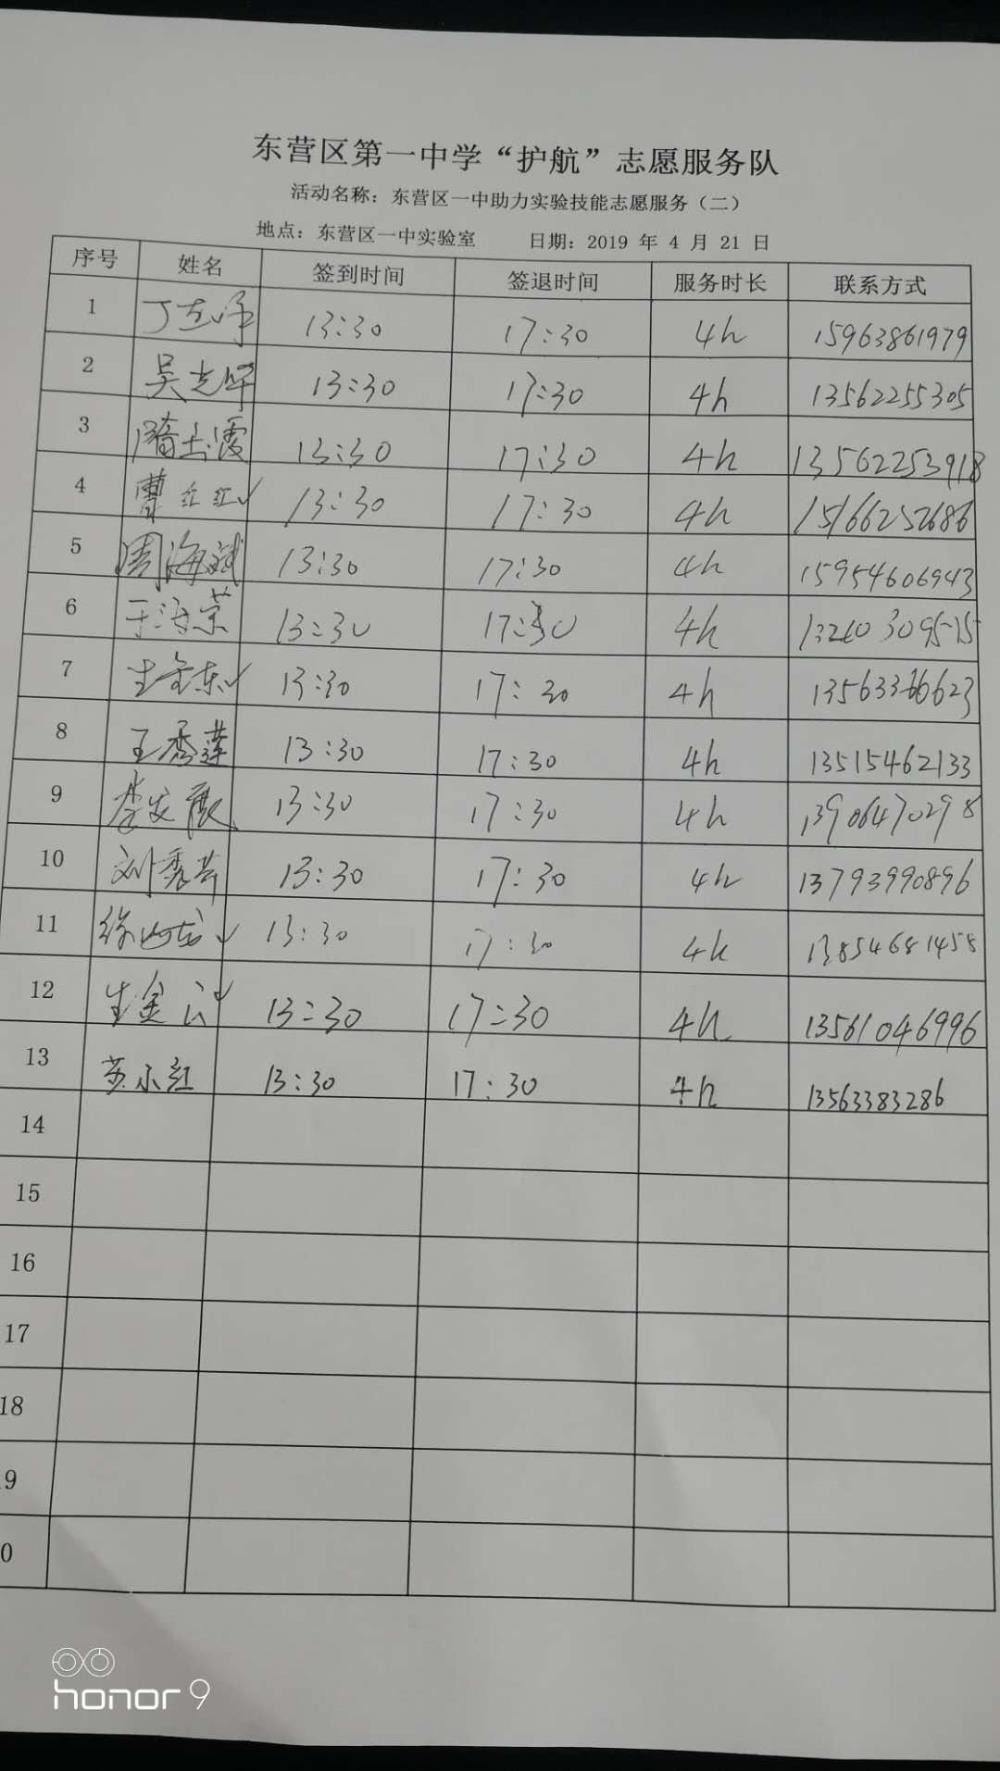 东营区第一中学“护航”志愿服务队
活动名称：东营区一中助力实验技能志愿服务（二）
地点：东营区一中实验室 日期：2019 年 4 月 21 日
序号 姓名 签到时间 签退时间 服务时长 联系方式
1 丁 13:30 17:30 4h 15963861979
2 吴光 13:30 17:30 4h 13562255305
3 隋玉霞 13:30 17:30 4h 13562253918
4 曹红红 13:30 17:30 4h 15166252686
5 周海斌 13:30 17:30 4h 15954606943
6 于海荣 13:30 17:30 4h
7 生金东 13:30 17:30 4h
8 王秀莲 13:30 17:30 4h 13515462133
9 李发 13:30 17:30 4h 13906470298
10 刘秀芹 13:30 17:30 4h 13793990896
11 徐 13:30 17:30 4h 13854681458
12 生金云 13:30 17:30 4h 13561046996
13 苏小红 13:30 17:30 4h 13563383286
14
15
16
17
18
9
0
honor 9